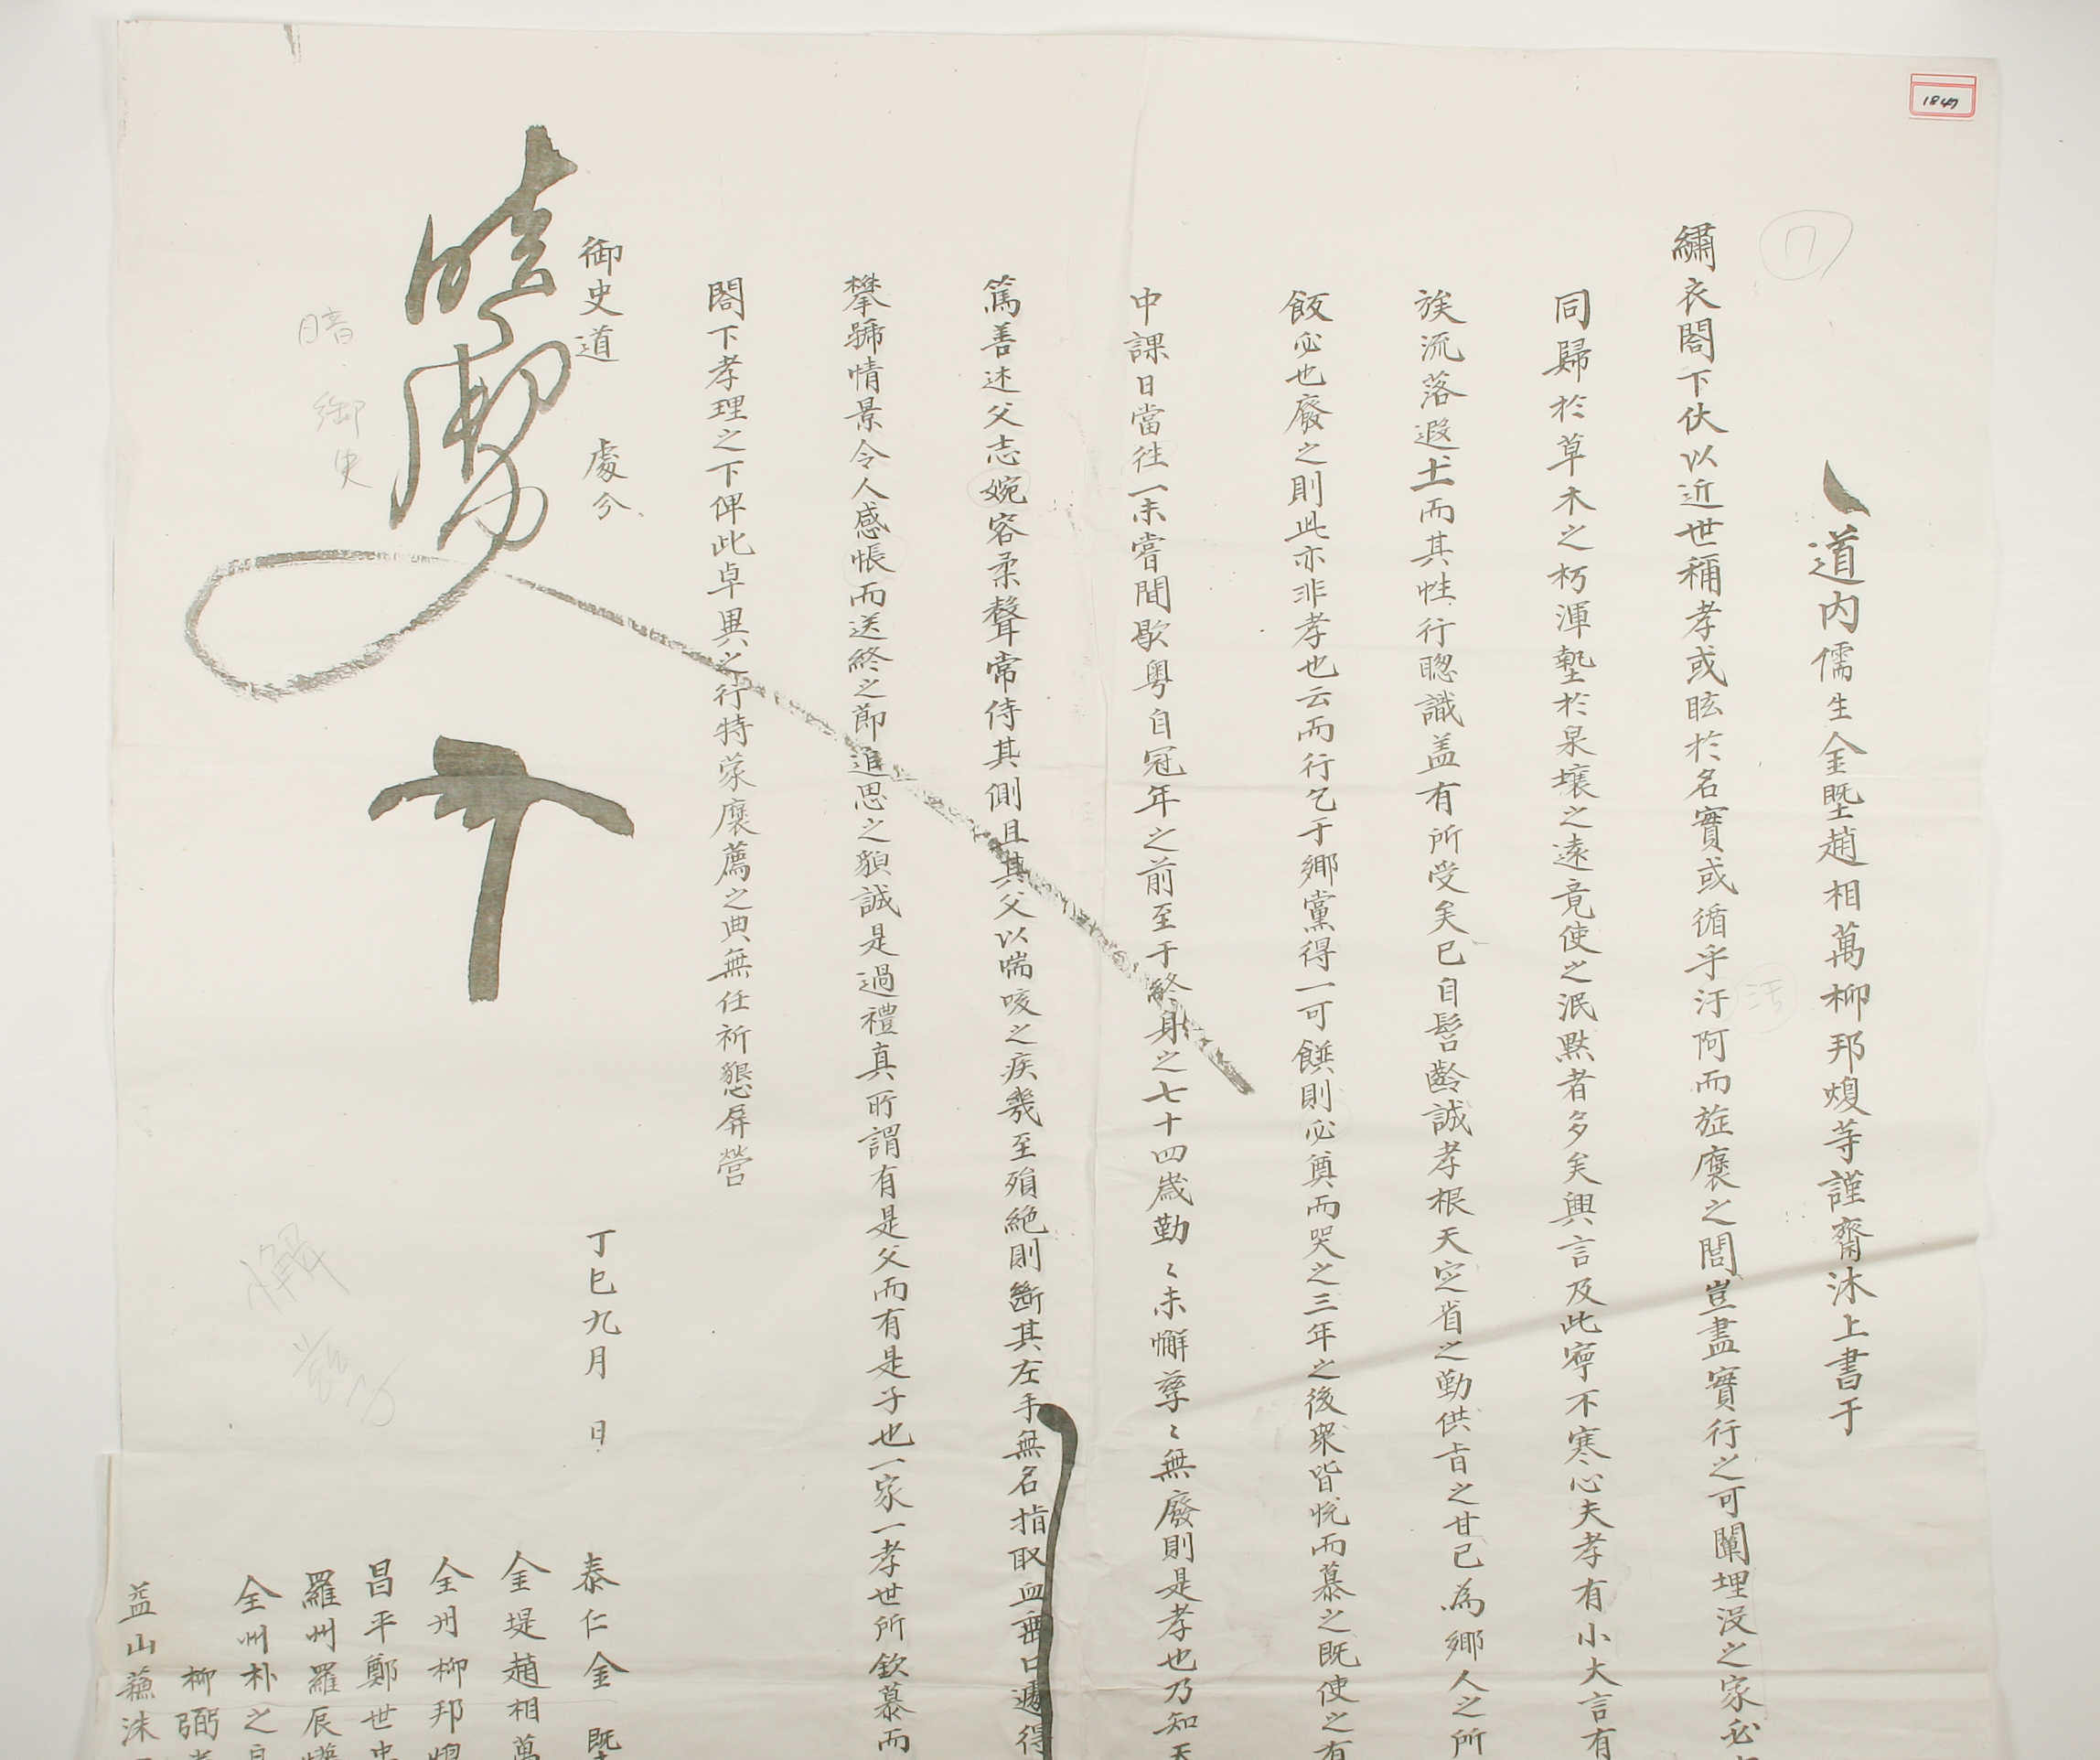 1847
道内儒生金塈趙相萬柳邦煥等謹齋沐上書于
繡衣閤下伏以近世稱孝或眩於名實或循乎汙阿而旌褒之閭豈盡實行之可闡埋沒之家必
同歸於草木之朽渾墊於泉壤之遠竟使之泯默者多矣興言及此寧不寒心夫孝有小大言有
族流落遐土而其性行聰識盖有所受矣已自髫齡誠孝根天定省之勤供旨之甘已為鄉人之所
飯必也廢之則此亦非孝也云而行乞于鄉黨得一可饌則必奠而哭之三年之後衆皆悅而慕之既使之有
中課日當往一未嘗間歇粤自冠年之前至于終身之七十四歲勤〻未懈孶〻無廢則是孝也乃知天
篤善述父志婉容柔聲常侍其側且其父以喘咳之疾幾至殞絶則斷其左手無名指取血垂口遞得
攀號情景令人感悵而送終之節追思之額誠是過禮真所謂有是父而有是子也一家一孝世所欽慕而
閤下孝理之下俾此卓異之行特蒙褒薦之典無任祈懇屏營
御史道 處分
丁巳九月 日
泰仁金
金堤趙相萬
全州柳邦
昌平鄭世忠
羅州羅辰
全州朴之
柳弼
益山蘇洙
暗
御史
汚